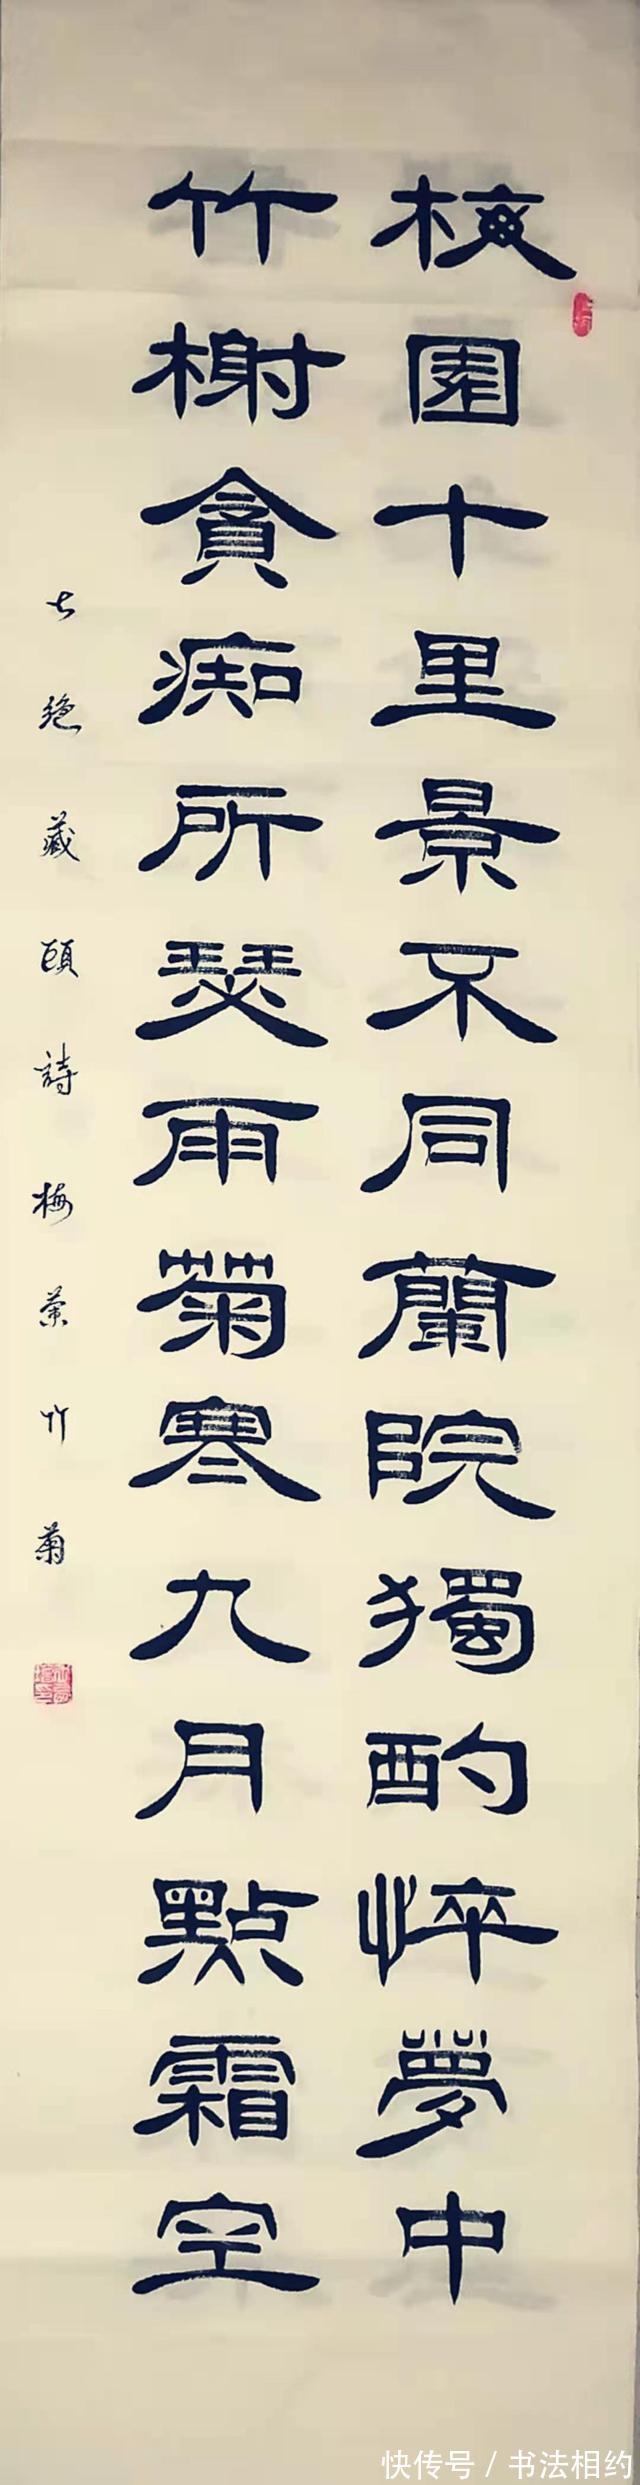 梅園十里景不同蘭院獨酌悴夢中
竹榭貪痴所瑟雨菊寒九月點霜空
七絕藏頭詩梅蘭竹菊
快传号/书法相约